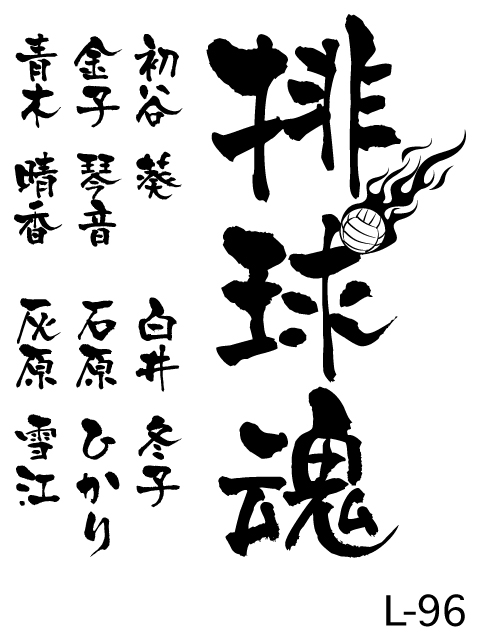 排球魂
初谷 葵
白井 冬子
金子 琴音
石原 ひかり
青木 晴香
灰原 雪江
L-96